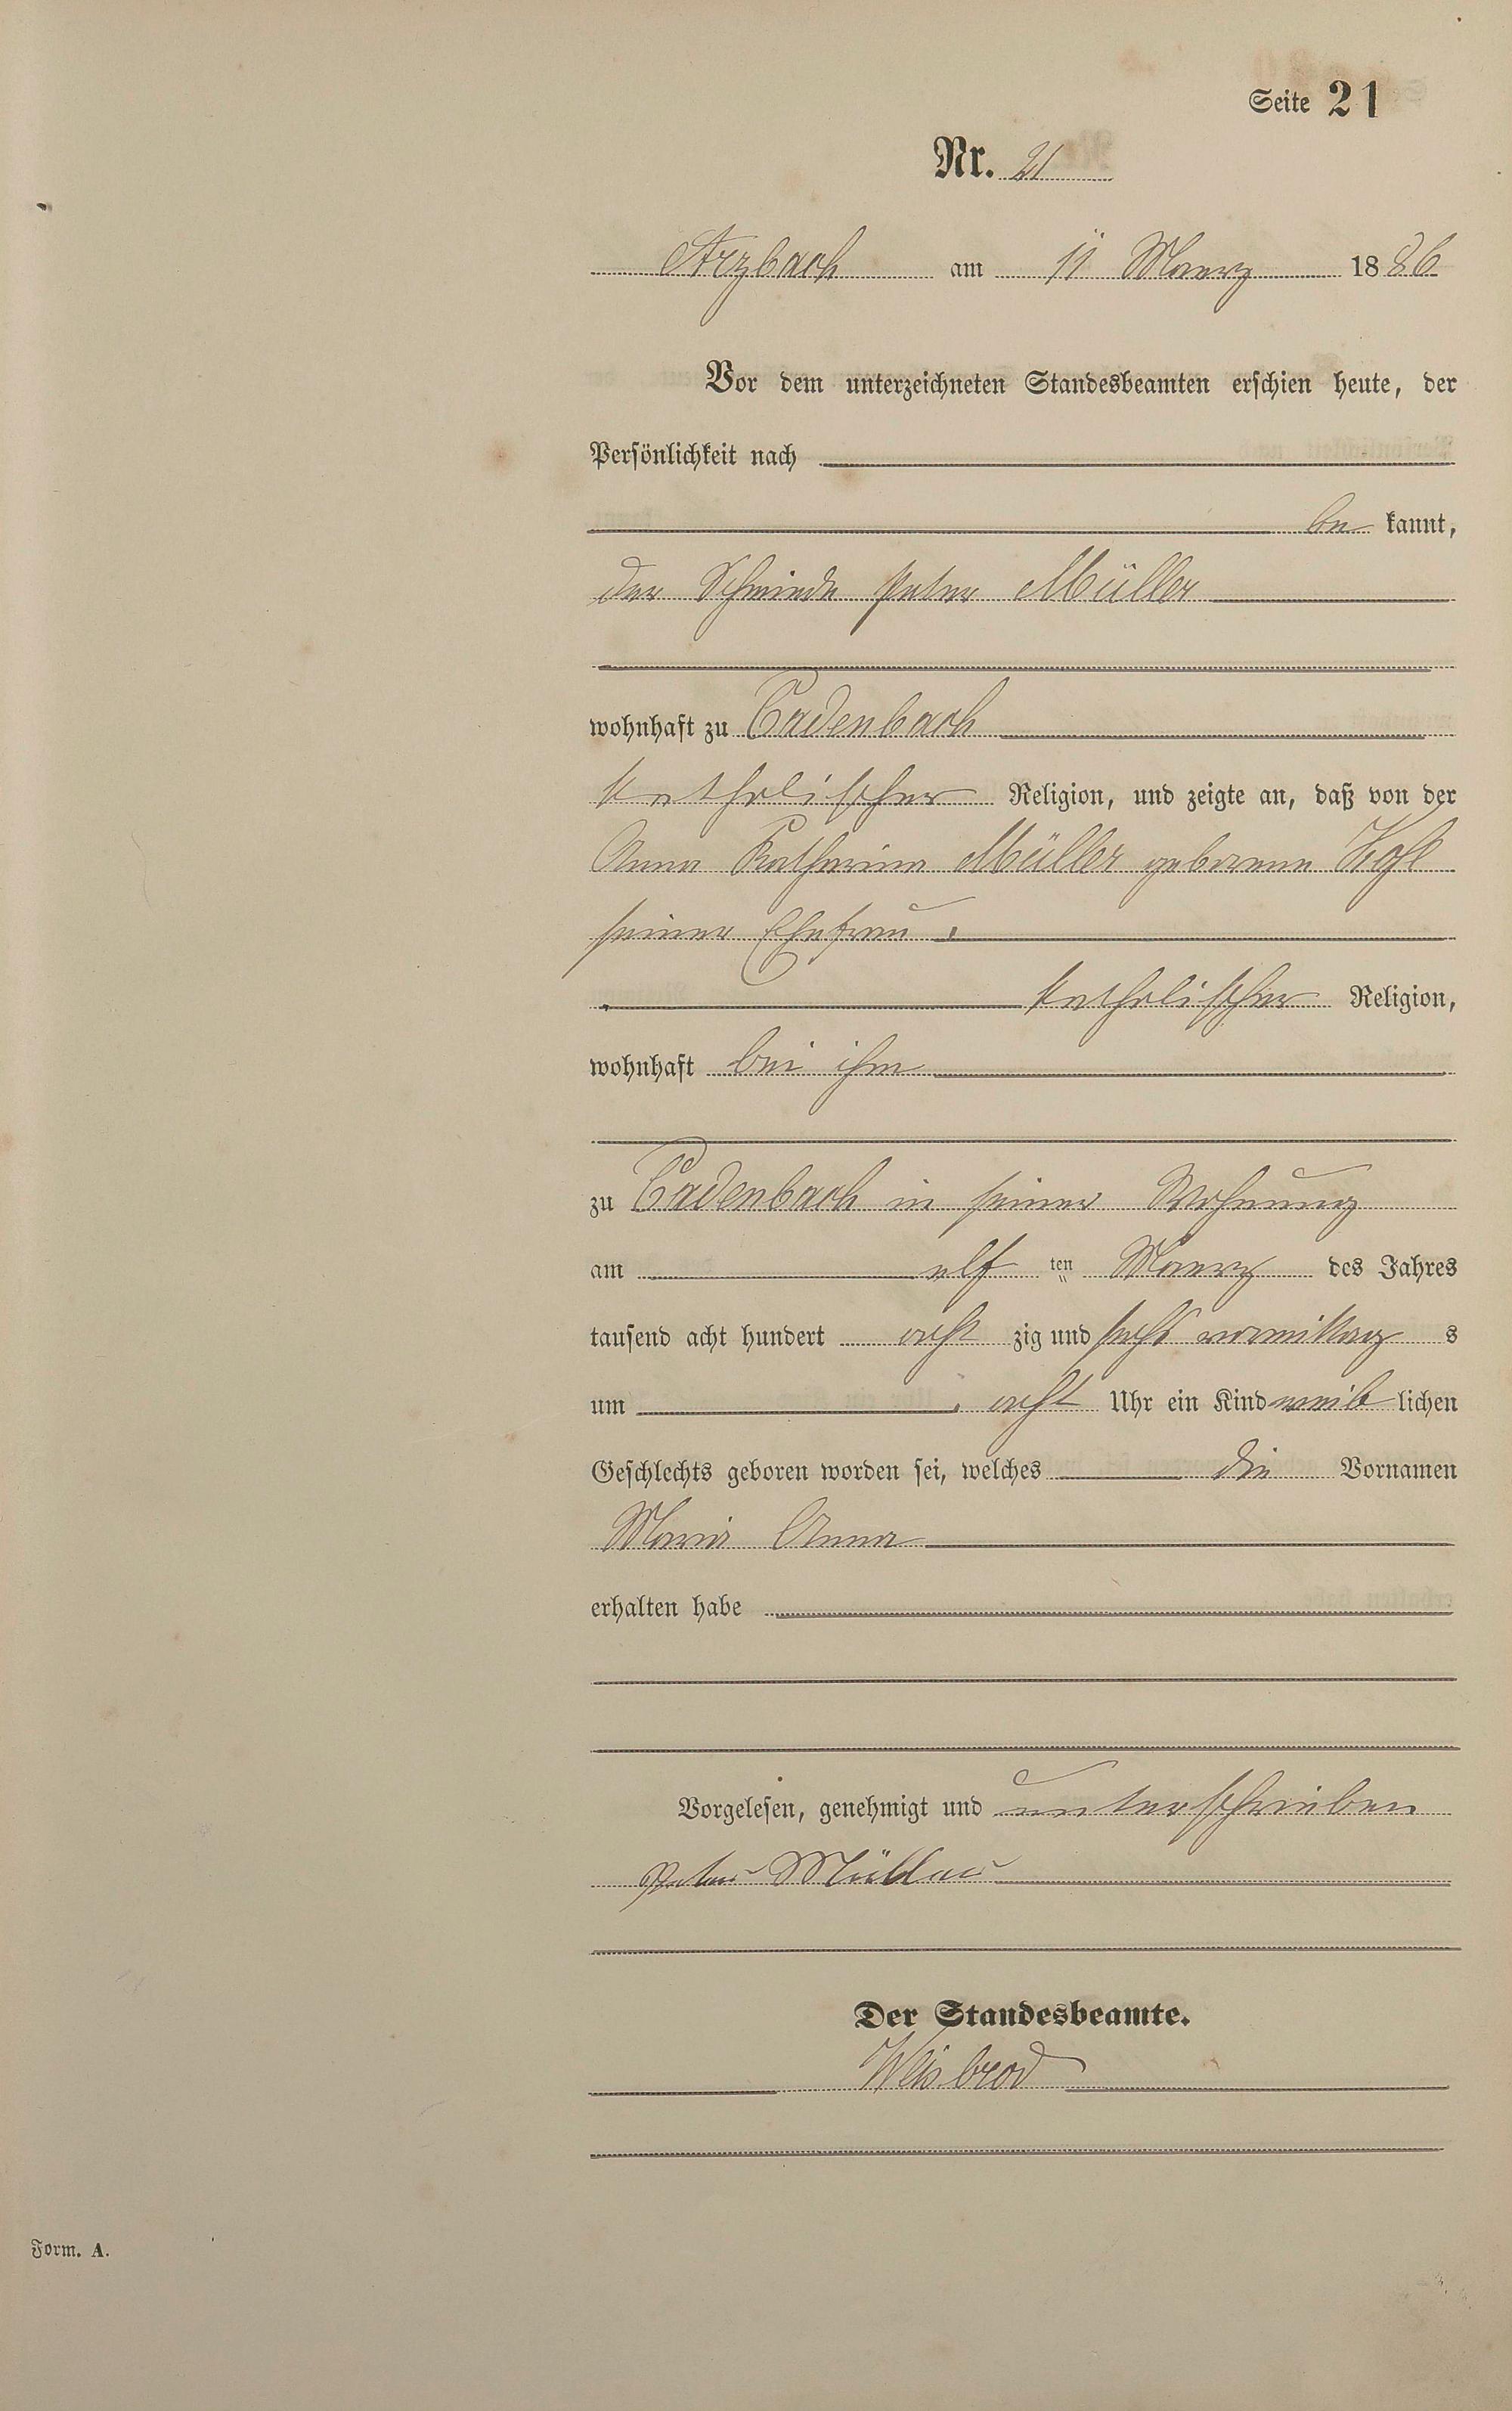 Seite 21
Nr. 21
Arzbach am 11 Maerz 1886
Vor dem unterzeichneten Standesbeamten erschien heute, der
Persönlichkeit nach
be kannt,
der Schmiede Peter Müller
wohnhaft zu Cadenbach
katholischer Religion, und zeigte an, daß von der
Anna Katharina Müller geborene
seiner Ehefrau
katholischer Religion,
wohnhaft bei ihm
zu Cadenbach in seiner Wohnung
am elf ten Maerz des Jahres
tausend acht hundert acht zig und sechs vormittag s
um acht Uhr ein Kind weib lichen
Geschlechts geboren worden sei, welches die Vornamen
Maria Anna
erhalten habe
Vorgelesen, genehmigt und unterschrieben
Peter Müller
Der Standesbeamte.
Weisbrod
Form. A.